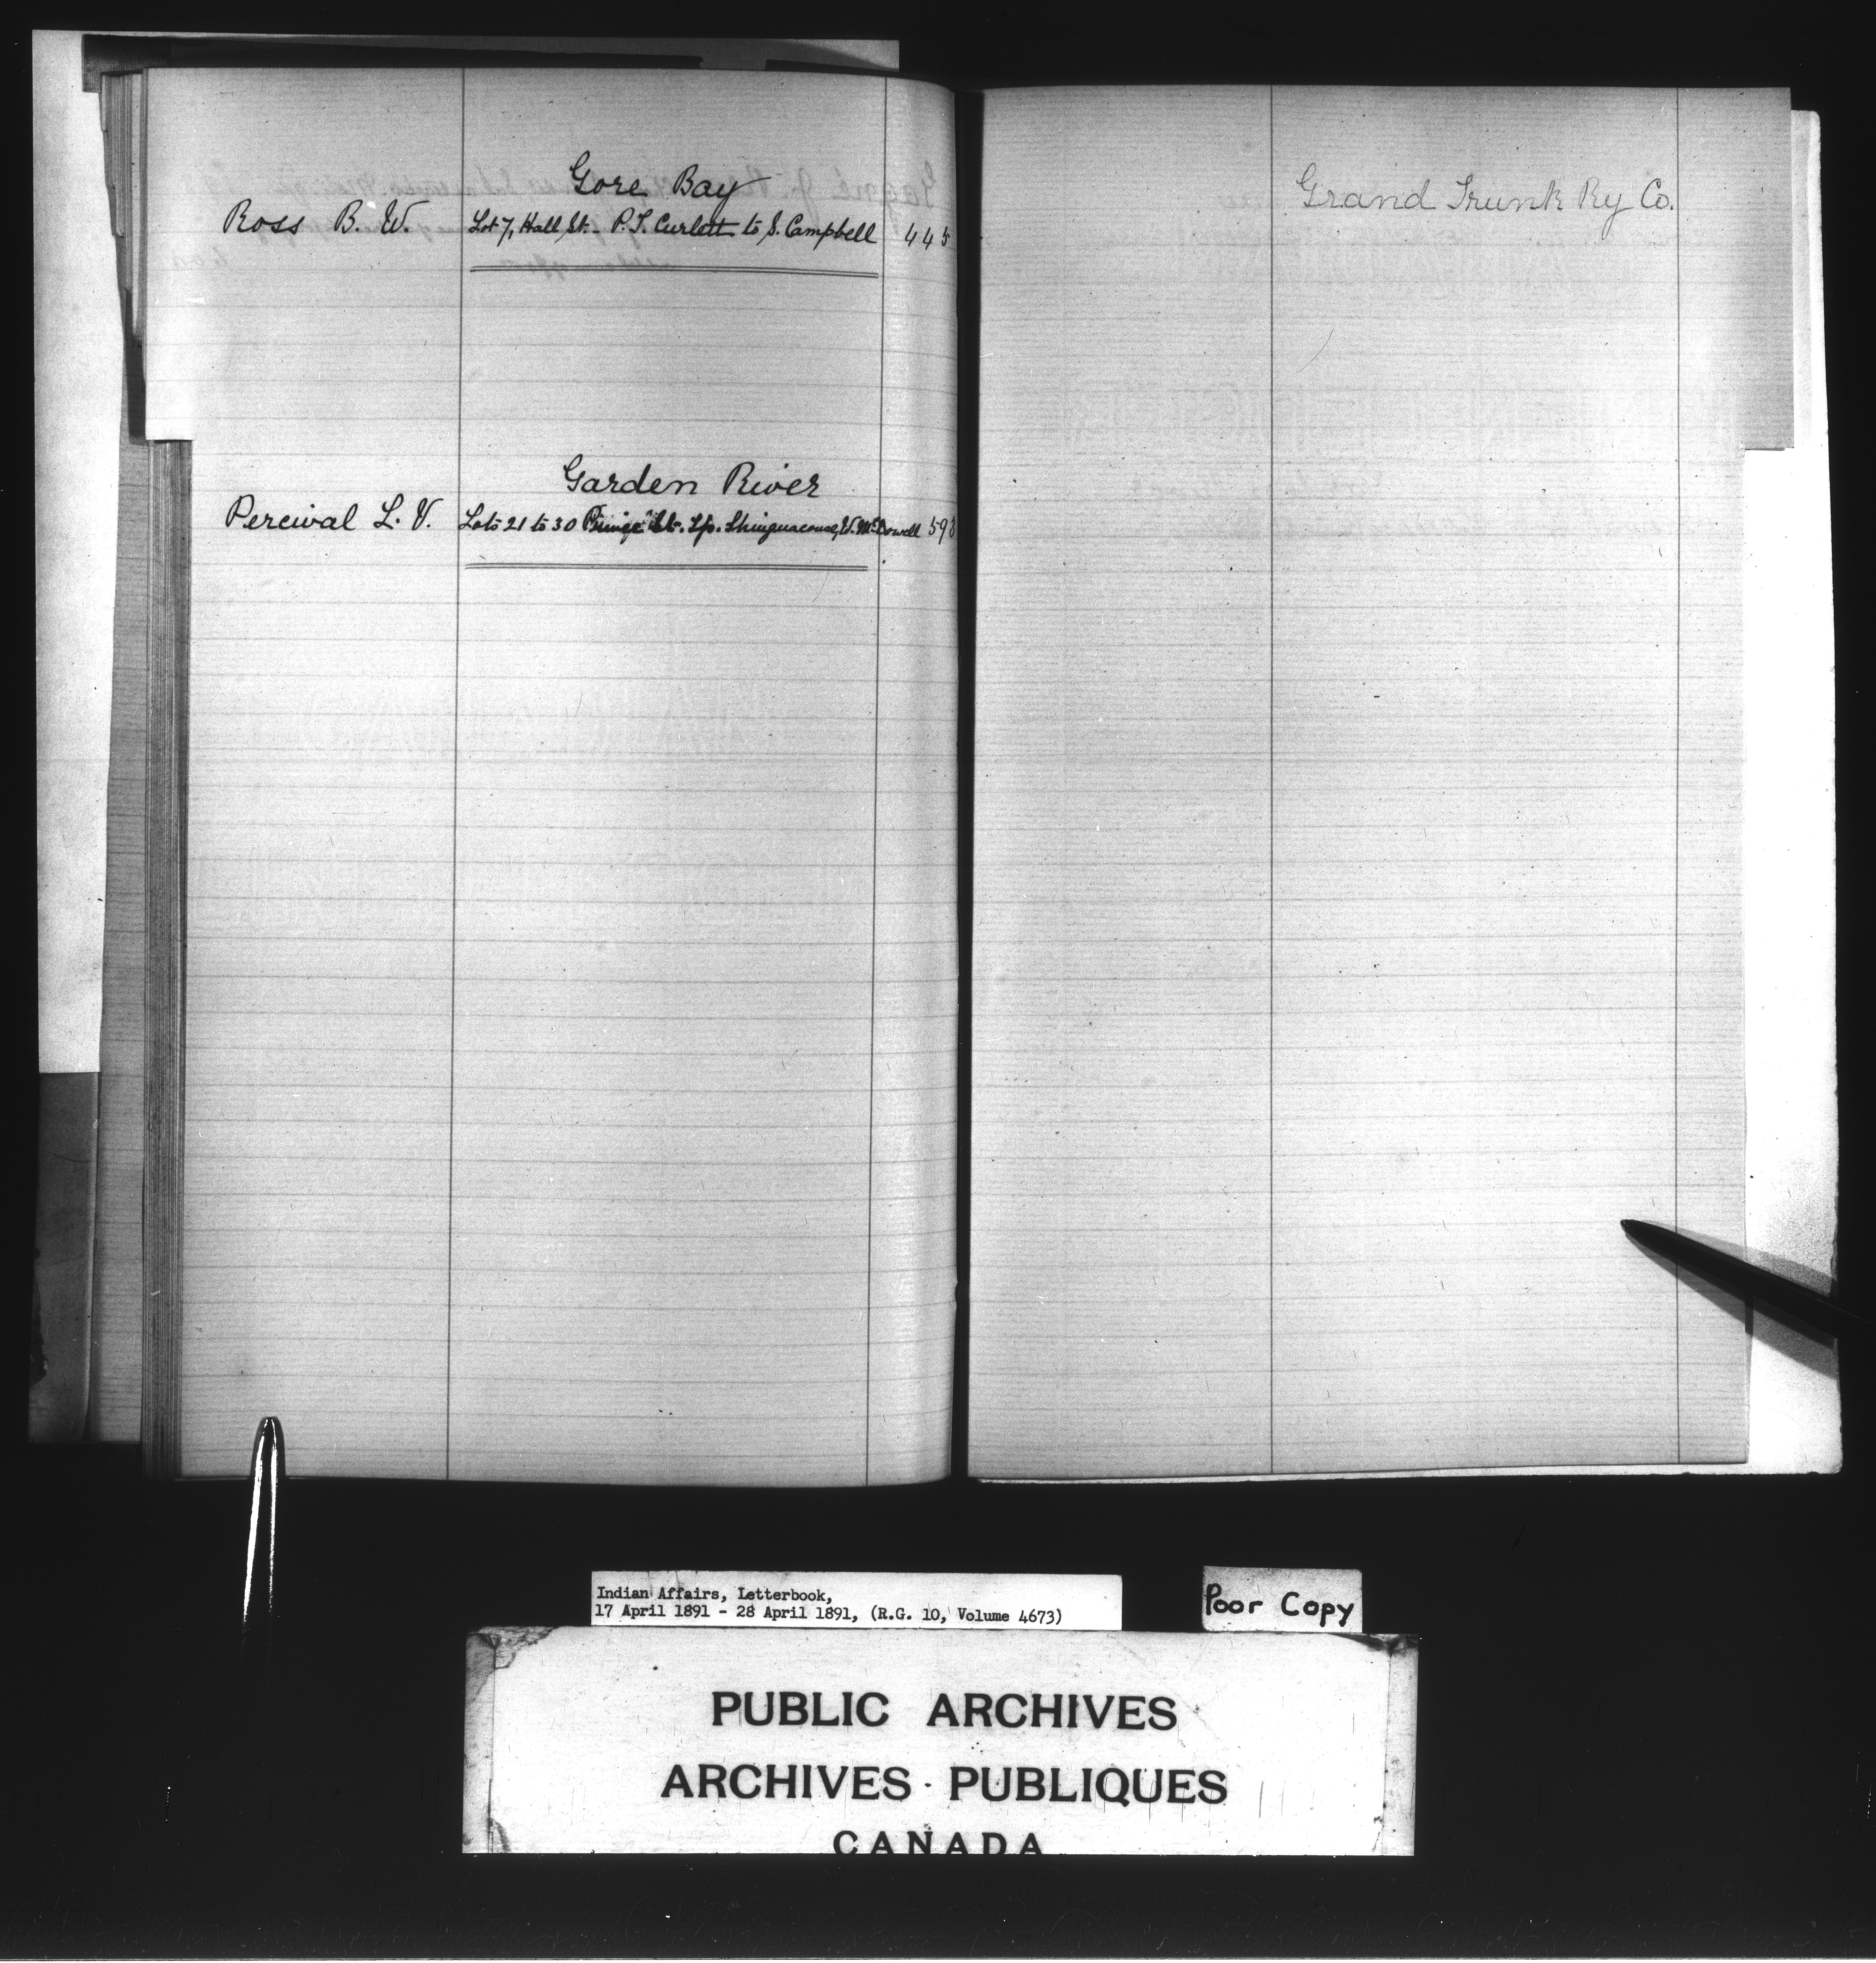 Gore Bay
Ross B. W. Lot 7, Hall St. - P. T. Curlett to S. Campbell 445
Garden River
Percival L. V. Lots 21 to 30 Prince St. Tp. Shinguacouse, W. McDowell 593
Grand Trunk Ry Co.
Indian Affairs, Letterbook,
17 April 1891 - 28 April 1891, (R.G. 10, Volume 4673)
Poor Copy
PUBLIC ARCHIVES
ARCHIVES PUBLIQUES
CANADA